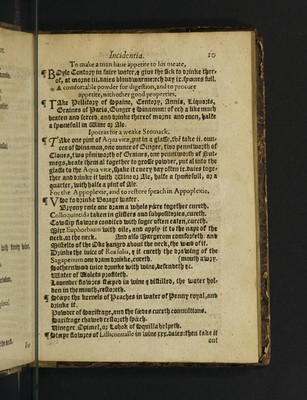 Incidentia. 10
To make a man haue appetite to his meate,
¶ Boyle Centory in faire water, & giue the sick to drinke ther-
of, at morne iii. daies bloud warme ech day ix. spones full.
A comfortable powder for digestion, and to procure
appetite, with other good properties,
¶ Take Pellitory of Spaine, Centory, Annis, Liquoris,
Graines of Paris, Ginger & Sinamont of ech a like much
beaten and serced, and drinke therof morne and euen, halfe
a sponefull in Wine or Ale.
Ipocras for a weake Stomack,
¶ Take one pint of Aqua vitæ, put in a glasse, thē take ii. oun-
ces of Sinamon, one ounce of Ginger, two penniworth of
Clones, two peniworth of Graines, one penniworth of Nut-
megs, beate them al together to grosse powder, put al into the
glasse to the Aqua vitæ, shake it euery day often ix. daies toge-
ther and drinke it with Wine or Ale, halfe a sponefull, or a
quarter, with halfe a pint of Ale.
For the Appoplexie, and to restore speach in Appoplexie,
¶ Vse to drinke Borage water.
Bryony rote one dram a whole yeere together cureth.
Colloquintida taken in glisters and suppositories, cureth.
Cowslip flowres condited with suger often eaten, cureth.
Mixt Euphorbium with oile, and apply it to the nape of the
neck, at the neck. And also Margerom comforteth: and
Miselto of the Oke hanged about the neck, the wod of it.
Drinke the iuice of Rosa solis, & it cureth the drawing of the
Sagapenum one dram drunke, cureth. (mouth awry.
Sothernwod iuice drunke with wine, defendeth &c.
Water of Violets profiteth.
Lauender flowres steeped in wine & distilled, the water hol-
den in the mouth, restoreth.
¶ Steepe the kernels of Peaches in water of Penny royal, and
drinke it.
Powder of Saxifrage, and the seedes cureth conuulsions.
Saxifrage chawed restoreth speech.
Vineger Squinel, or Lohok of Squilla helpeth.
¶ Steepe yᵉ flowres of Lillicōuallie in wine xxx. daies: then take it
out